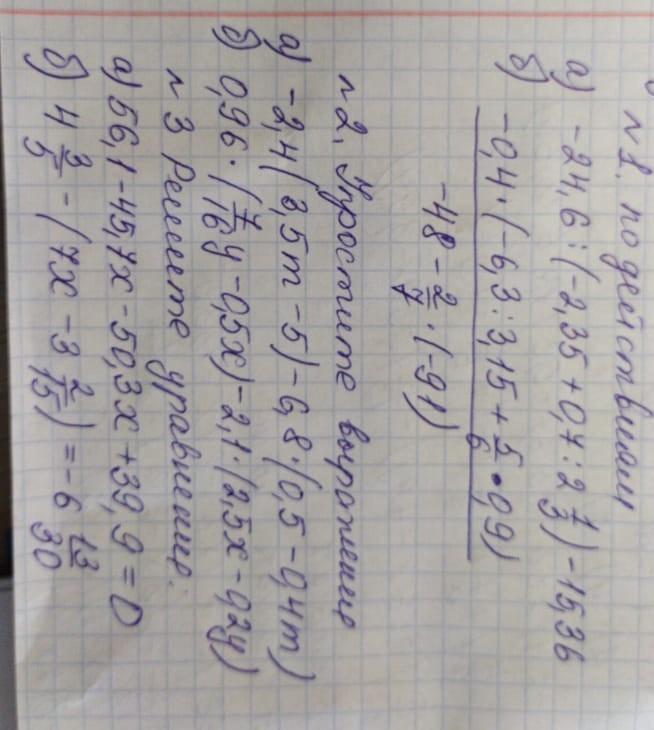 №1. по действиям
а) -24,6 : (-2,35 + 0,7 : 2 1/3) - 15,36
б) -0,4 · (-6,3 : 3,15 + 5/6 · 0,9)
-48 - 2/7 · (-91)
№2. Упростите выражение
а) -2,4(3,5m - 5) - 6,8 · (0,5 - 0,4m)
б) 0,96 · (7/16 y - 0,5x) - 2,1 · (2,5x - 0,2y)
№3 Решите уравнение:
а) 56,1 - 45,7x - 50,3x + 39,9 = 0
б) 4 3/5 - (7x - 3 2/15) = -6 13/30